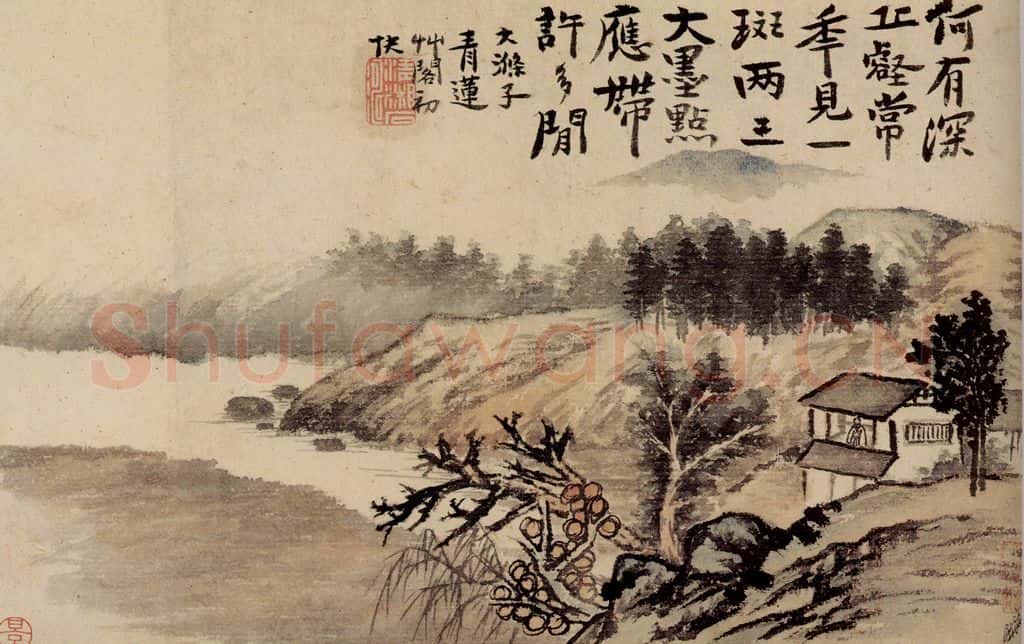 何有深
丘壑常
秊見一
斑两三
大墨點
應帶
許多閒
大滌子
青蓮
艸閣初
伏
Shufawang.CN